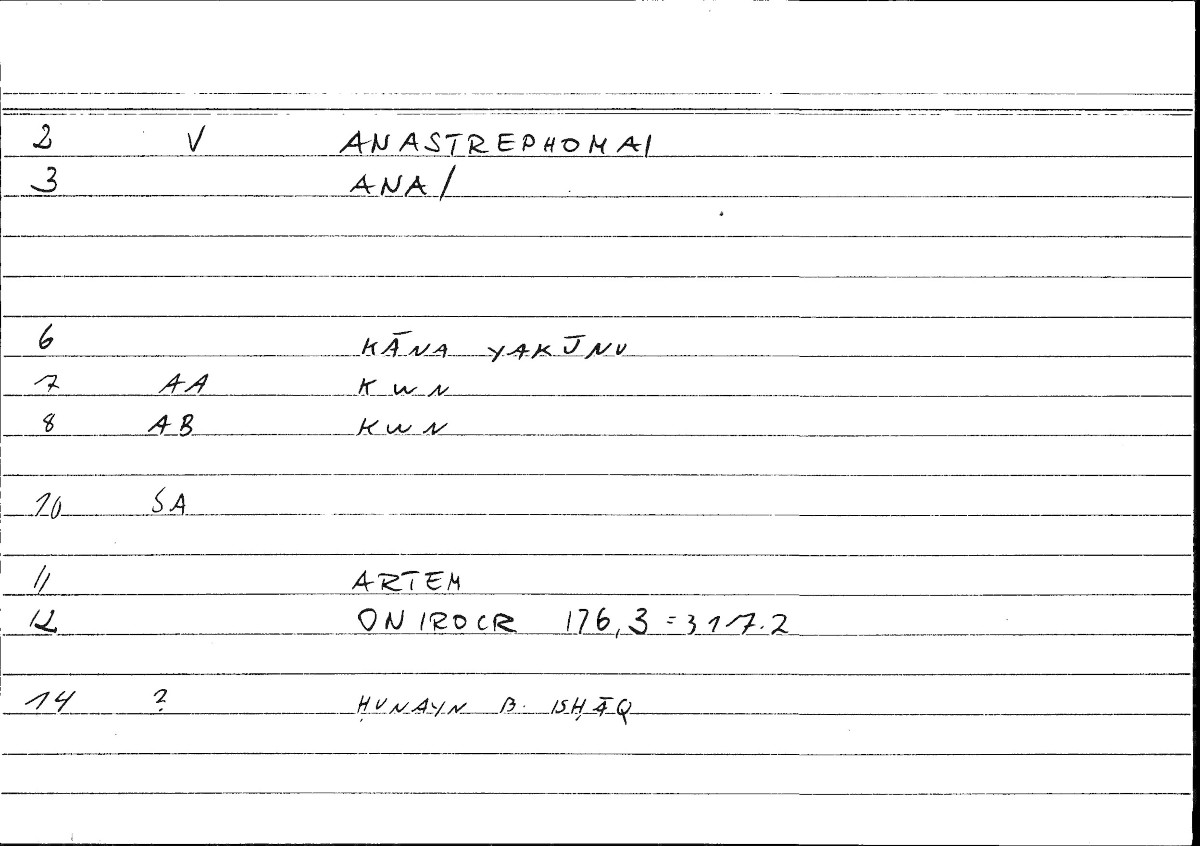 2 V ANASTREPHOMAI
3 ANA/
6 KĀNA YAKŪNU
7 AA KWN
8 AB KWN
10 SA
11 ARTEM
12 ONIROCR 176,3=317.2
14 ? ḤUNAYN B. ISḤĀQ